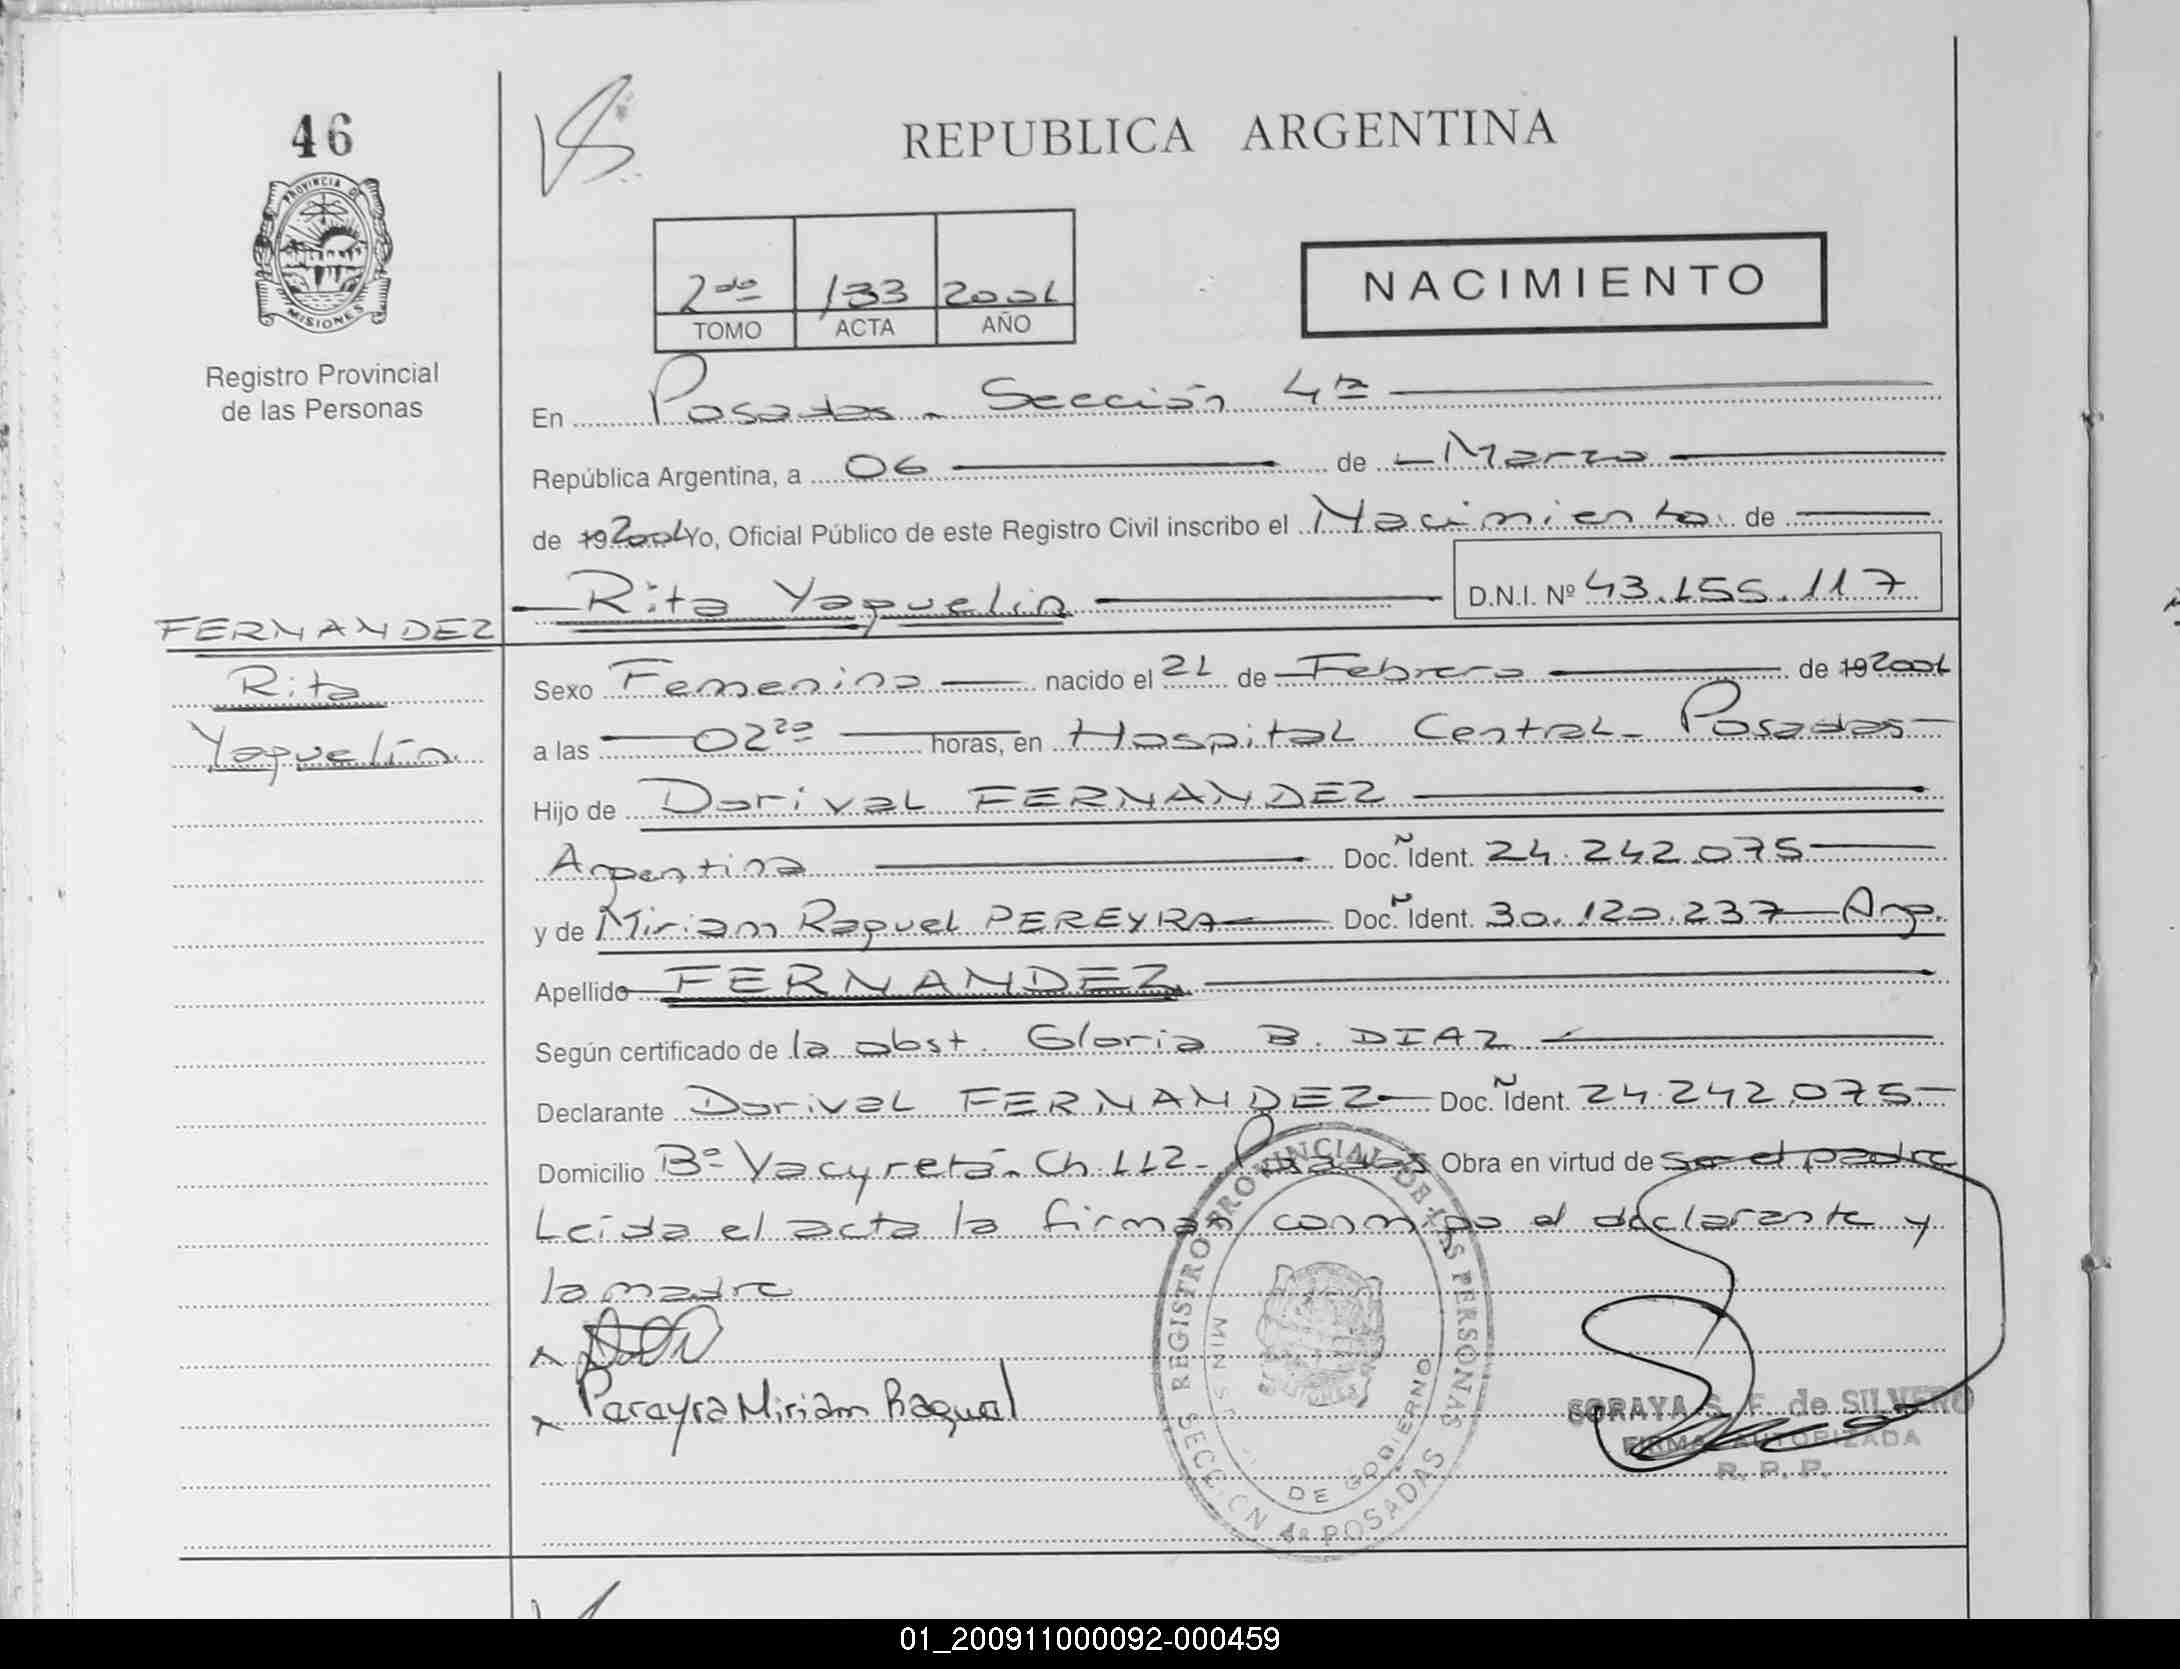 46
PROVINCIA D
MISIONES
Registro Provincial
de las Personas
REPUBLICA ARGENTINA
2do 133 2001
TOMO ACTA AÑO
NACIMIENTO
En Posadas - Sección 4ta
República Argentina, a 06 de Marzo
de 19 2001 Yo, Oficial Público de este Registro Civil inscribo el Nacimiento de
Rita Yaquelin D.N.I. Nº 43.155.117
FERNANDEZ
Rita
Yaquelín
Sexo Femenino nacido el 21 de Febrero de 19 2001
a las 02 20 horas, en Hospital Central - Posadas
Hijo de Dorival FERNANDEZ
Argentina Doc. Ident. 24.242.075
y de Miriam Raquel PEREYRA Doc. Ident. 30.120.237 Arg.
Apellido FERNANDEZ
Según certificado de la obst. Gloria B. DIAZ
Declarante Dorival FERNANDEZ Doc. Ident. 24.242.075
Domicilio Bº Yacyretá - Ch. 112 - Posadas Obra en virtud de ser el padre
Leída el acta la firman conmigo el declarante y
la madre
Pereyra Miriam Raquel
REGISTRO PROVINCIAL DE LAS PERSONAS
DE GOBIERNO
4º POSADAS
SORAYA S. F. de SILVERO
FIRMA AUTORIZADA
R. P. P.
01_200911000092-000459